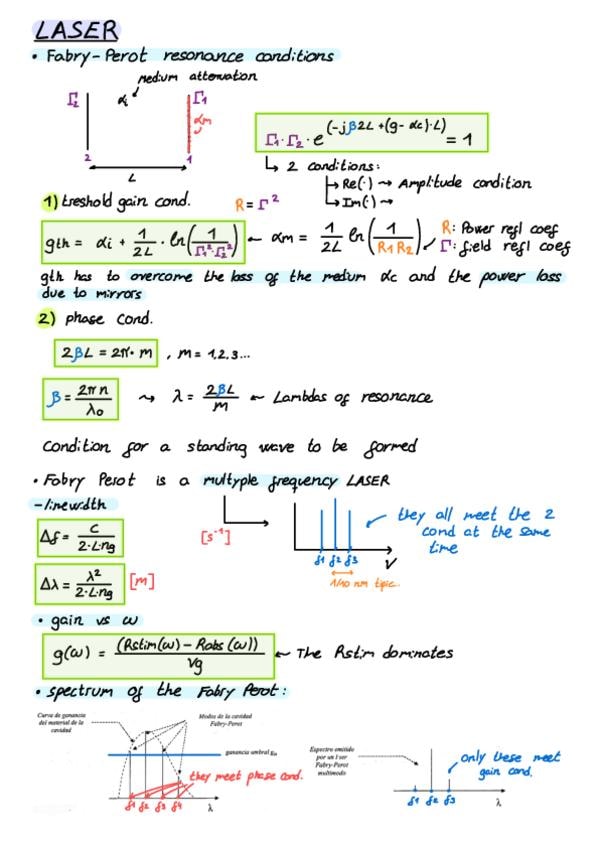 LASER
• Fabry-Perot resonance conditions
medium attenuation
Γ2 αi Γ1
αm
2 1
L
Γ1·Γ2·e^(-jβ2L+(g-αc)·L) = 1
↳ 2 conditions:
Re(·) ⇝ Amplitude condition
Im(·) ⇝
1) treshold gain cond. R = Γ²
gth = αi + 1/2L · ln(1/Γ1²·Γ2²) ← αm = 1/2L ln(1/R1R2) R: Power refl coef
Γ: field refl coef
gth has to overcome the loss of the medium αc and the power loss
due to mirrors
2) phase cond.
2βL = 2π· m , m = 1,2,3...
β = 2πn/λ0 ⇝ λ = 2βL/m ← Lambdas of resonance
Condition for a standing wave to be formed
• Fabry Perot is a multyple frequency LASER
- linewidth
Δf = c/2·L·ng [s⁻¹]
they all meet the 2
cond at the same
time
f1 f2 f3 ν
1/10 nm tipic.
Δλ = λ²/2·L·ng [m]
• gain vs ω
g(ω) = (Rstim(ω) - Rabs(ω))/Vg ← The Rstim dominates
• spectrum of the Fabry Perot:
Curva de ganancia
del material de la
cavidad
Modos de la cavidad
Fabry-Perot
ganancia umbral gth
they meet phase cond.
f1 f2 f3 f4 λ
Espectro emitido
por un láser
Fabry-Perot
multimodo
only these meet
gain cond.
f1 f2 f3 λ